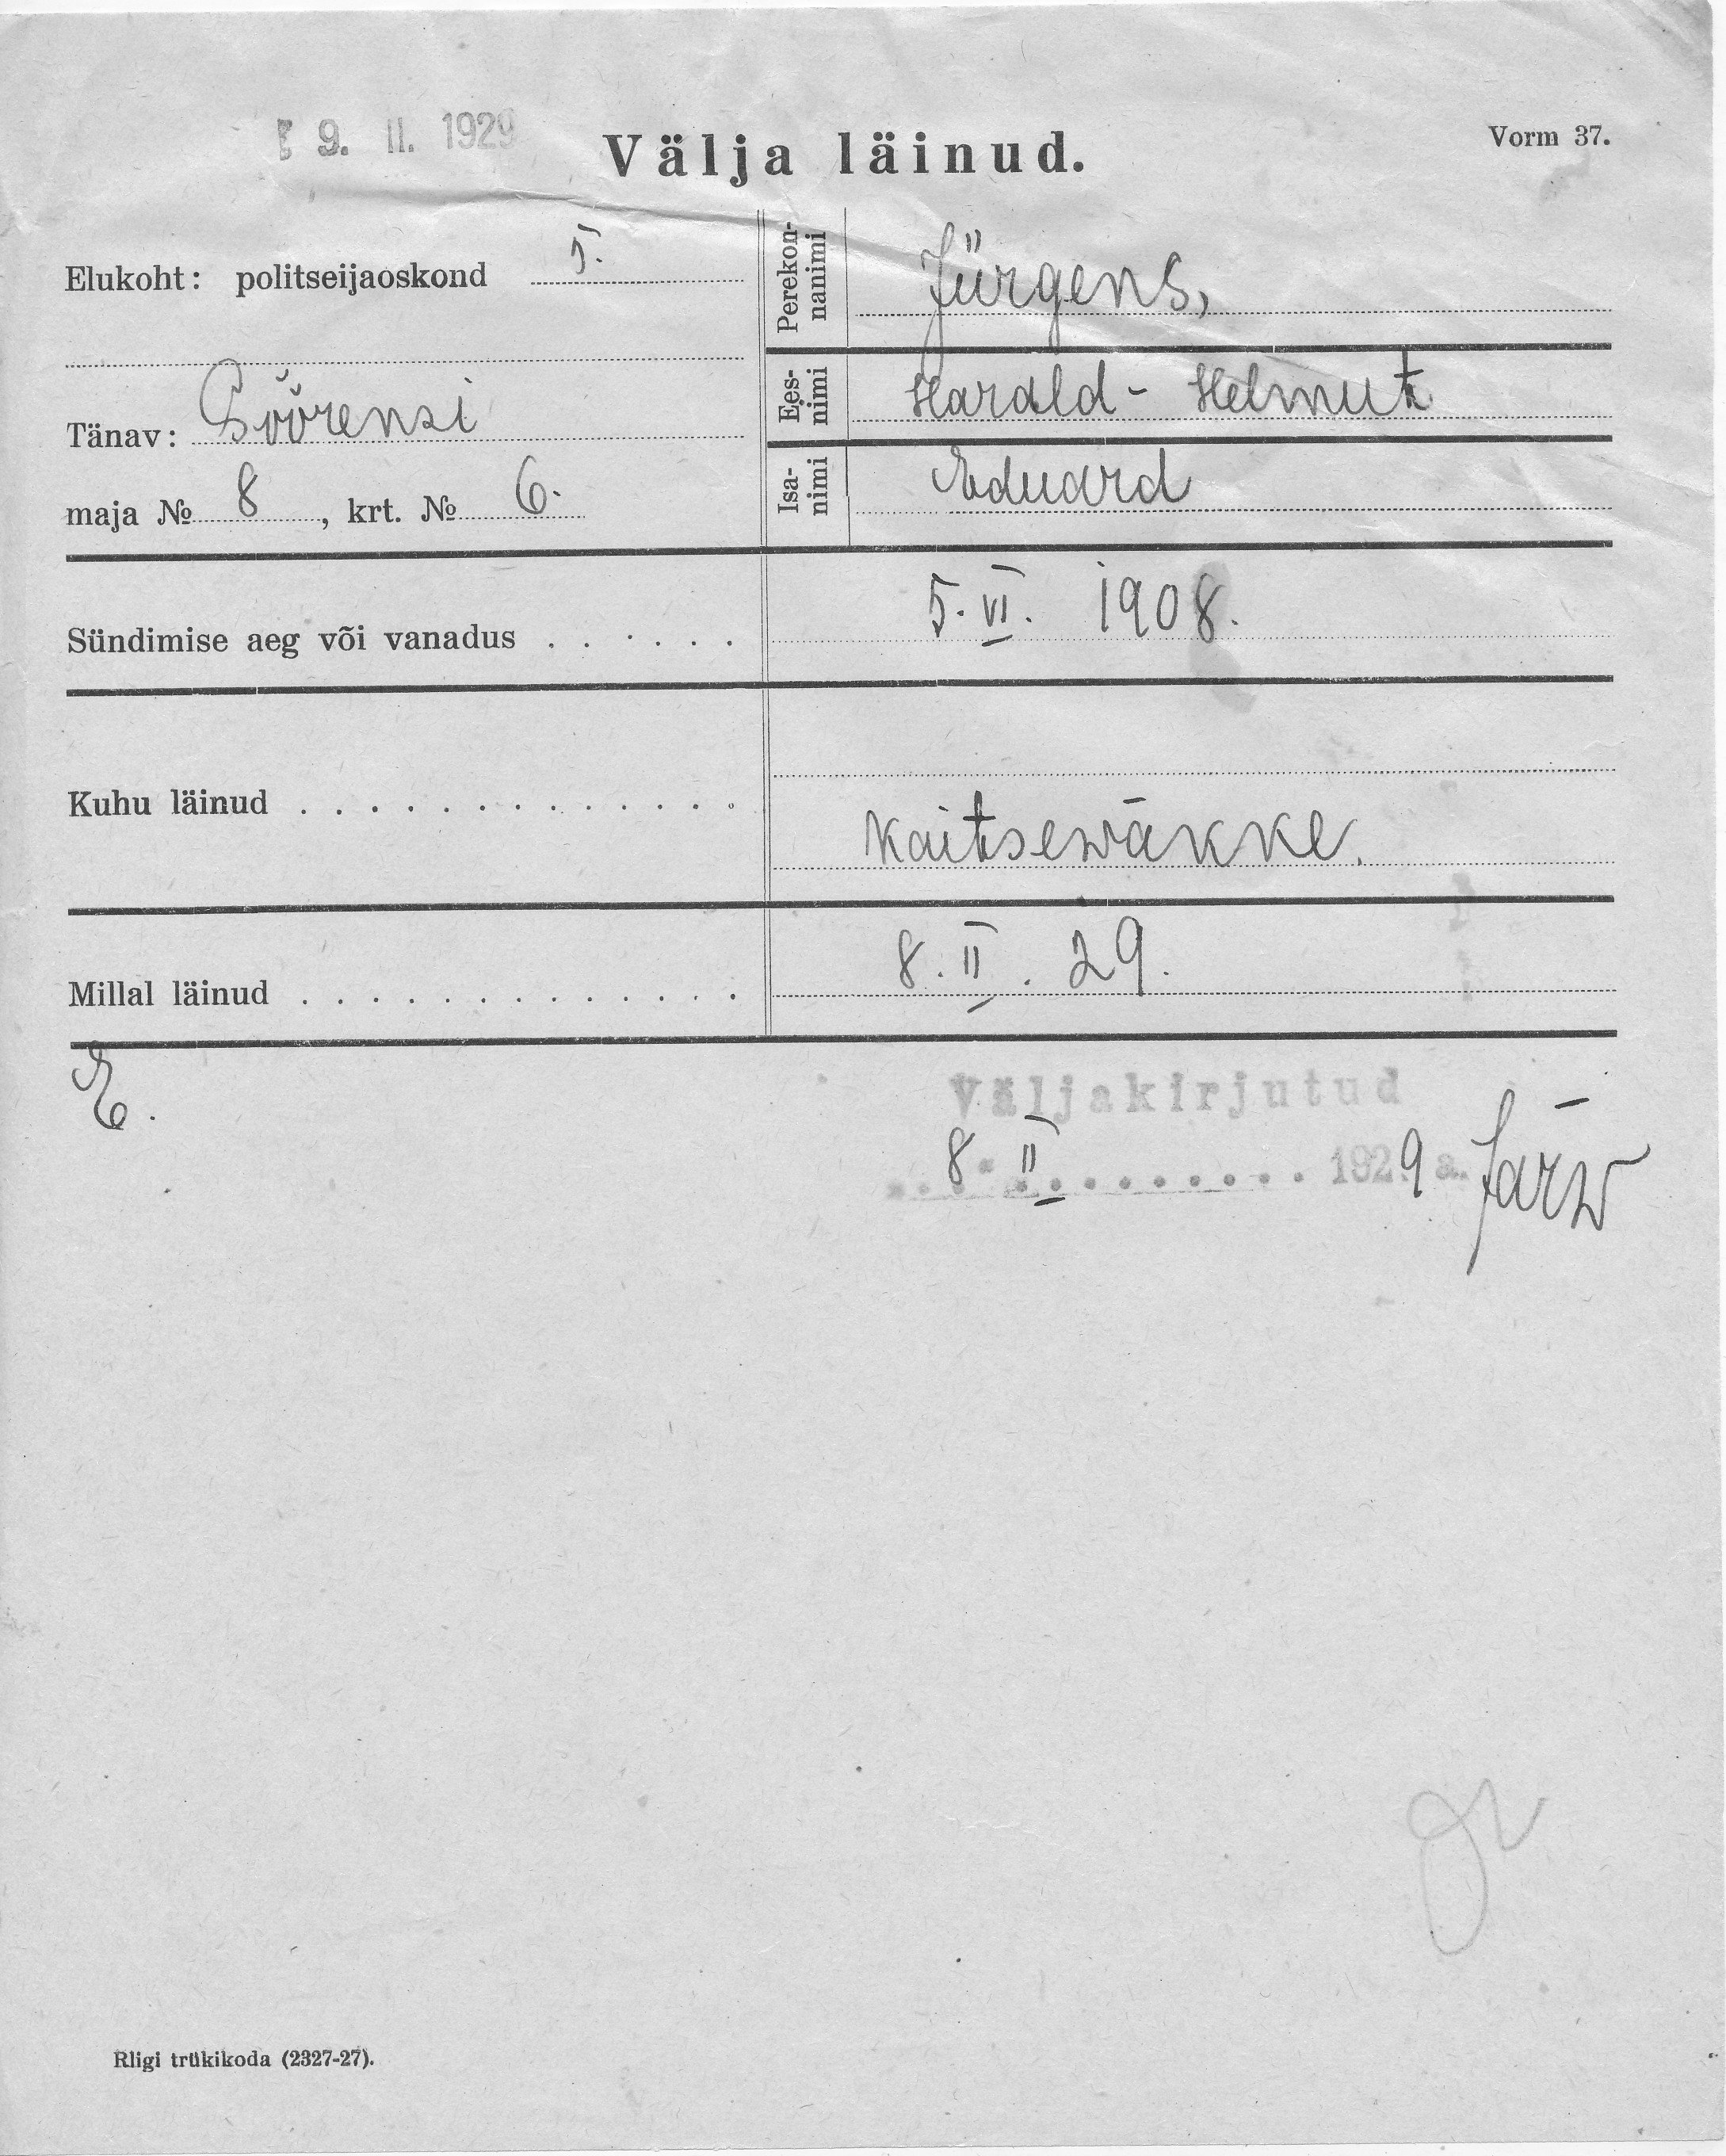 9. II. 1929
Välja läinud.
Vorm 37.
Elukoht: politseijaoskond 5.
Tänav: Söörensi
maja № 8, krt. № 6.
Perekonnanimi Jürgens,
Eesnimi Harald - Helmut
Isanimi Eduard
Sündimise aeg või vanadus . . . . . . 5. VI. 1908.
Kuhu läinud . . . . . . . . . . . . . Kaitsewäkke.
Millal läinud . . . . . . . . . . . . . 8. II. 29.
E.
Väljakirjutud
8. II . . . . . . . . . 1929 a. Järw
Riigi trükikoda (2327-27).